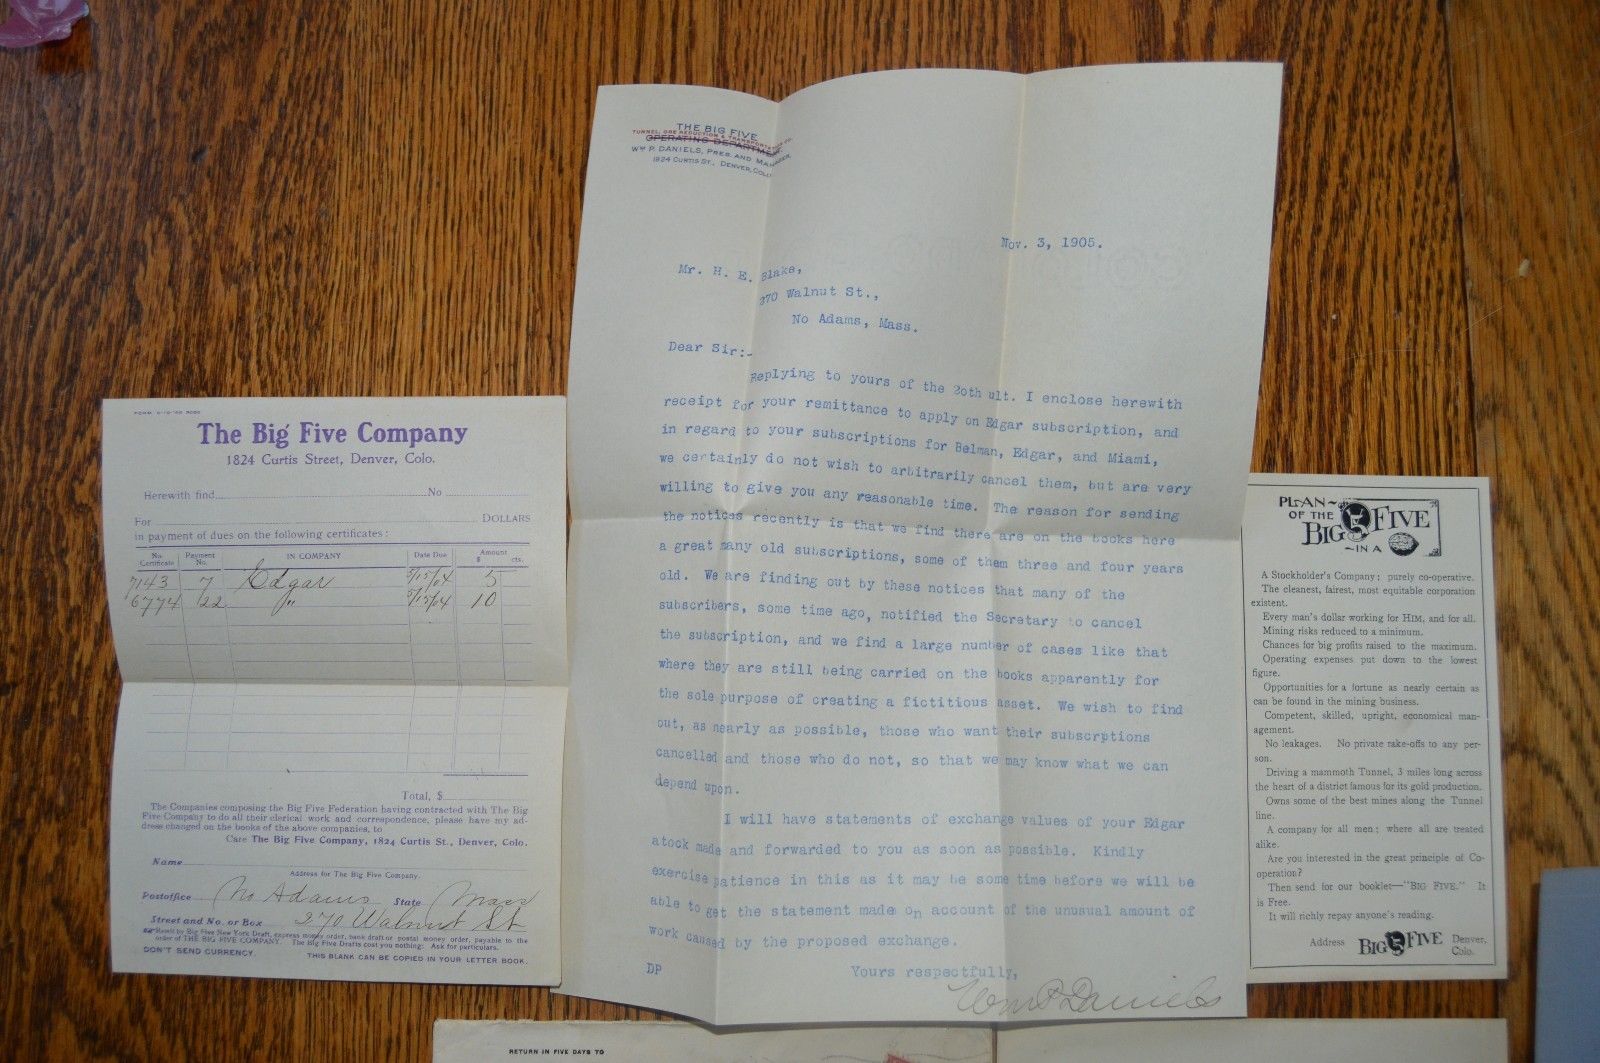 The Big Five Company
1824 Curtis Street, Denver, Colo.
Herewith find No
For DOLLARS
in payment of dues on the following certificates:
No. Certificate Payment No. IN COMPANY Date Due Amount $ cts.
7143 7 Edgar 5/15/04 5
6774 22 " 5/15/04 10
Total, $
The Companies composing the Big Five Federation having contracted with The Big
Five Company to do all their clerical work and correspondence, please have my ad-
dress changed on the books of the above companies, to
Care The Big Five Company, 1824 Curtis St., Denver, Colo.
Name
Address for The Big Five Company.
Postoffice No Adams State Mass
Street and No. or Box 270 Walnut St
Remit by Big Five New York Draft, express money order, bank draft or postal money order, payable to the
order of THE BIG FIVE COMPANY. The Big Five Drafts cost you nothing. Ask for particulars.
DON'T SEND CURRENCY. THIS BLANK CAN BE COPIED IN YOUR LETTER BOOK.
THE BIG FIVE
TUNNEL, ORE REDUCTION & TRANSPORTATION CO.
OPERATING DEPARTMENT.
WM P. DANIELS, PRES. AND MANAGER,
1824 CURTIS ST., DENVER, COLO.
Nov. 3, 1905.
Mr. H. E. Blake,
270 Walnut St.,
No Adams, Mass.
Dear Sir:-
Replying to yours of the 20th ult. I enclose herewith
receipt for your remittance to apply on Edgar subscription, and
in regard to your subscriptions for Belman, Edgar, and Miami,
we certainly do not wish to arbitrarily cancel them, but are very
willing to give you any reasonable time. The reason for sending
the notices recently is that we find there are on the books here
a great many old subscriptions, some of them three and four years
old. We are finding out by these notices that many of the
subscribers, some time ago, notified the Secretary to cancel
the subscription, and we find a large number of cases like that
where they are still being carried on the books apparently for
the sole purpose of creating a fictitious asset. We wish to find
out, as nearly as possible, those who want their subscrptions
cancelled and those who do not, so that we may know what we can
depend upon.
I will have statements of exchange values of your Edgar
atock made and forwarded to you as soon as possible. Kindly
exercise patience in this as it may be some time before we will be
able to get the statement made on account of the unusual amount of
work caused by the proposed exchange.
DP Yours respectfully,
Wm P Daniels
PLAN
OF THE
BIG FIVE
IN A
A Stockholder's Company; purely co-operative.
The cleanest, fairest, most equitable corporation
existent.
Every man's dollar working for HIM, and for all.
Mining risks reduced to a minimum.
Chances for big profits raised to the maximum.
Operating expenses put down to the lowest
figure.
Opportunities for a fortune as nearly certain as
can be found in the mining business.
Competent, skilled, upright, economical man-
agement.
No leakages. No private rake-offs to any per-
son.
Driving a mammoth Tunnel, 3 miles long across
the heart of a district famous for its gold production.
Owns some of the best mines along the Tunnel
line.
A company for all men; where all are treated
alike.
Are you interested in the great principle of Co-
operation?
Then send for our booklet—"BIG FIVE." It
is Free.
It will richly repay anyone's reading.
Address BIG FIVE Denver, Colo.
RETURN IN FIVE DAYS TO